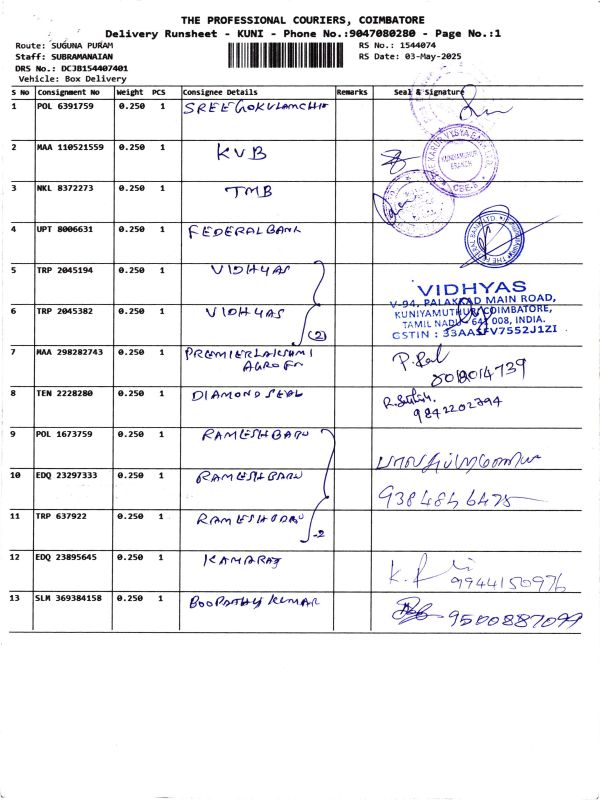 THE PROFESSIONAL COURIERS, COIMBATORE
Delivery Runsheet - KUNI - Phone No.:9047080280 - Page No.:1
Route: SUGUNA PURAM
RS No.: 1544074
Staff: SUBRAMANAIAN
RS Date: 03-May-2025
DRS No.: DCJB154407401
Vehicle: Box Delivery
S No Consignment No Weight PCS Consignee Details Remarks Seal & Signature
1 POL 6391759 0.250 1 SREEGOKULAMCHIT
2 MAA 110521559 0.250 1 KVB
KUNIYAMUTHUR BRANCH
CBE-8
3 NKL 8372273 0.250 1 TMB
4 UPT 8006631 0.250 1 FEDERAL BANK
5 TRP 2045194 0.250 1 VIDHYAS
VIDHYAS
V-94, PALAKKAD MAIN ROAD,
KUNIYAMUTHUR, COIMBATORE,
TAMIL NADU - 641 008, INDIA.
GSTIN : 33AASFV7552J1ZI
6 TRP 2045382 0.250 1 VIDHYAS
(2)
7 MAA 298282743 0.250 1 PREMIERLAKSHMI
AGRO
8018014739
8 TEN 2228280 0.250 1 DIAMOND SEAL
9842202394
9 POL 1673759 0.250 1 RAMESHBABU
10 EDQ 23297333 0.250 1 RAMESHBABU
11 TRP 637922 0.250 1 RAMESHBABU
-2
12 EDQ 23895645 0.250 1 KAMARAJ
9944150976
13 SLM 369384158 0.250 1 BOOPATHY KUMAR
9500887099